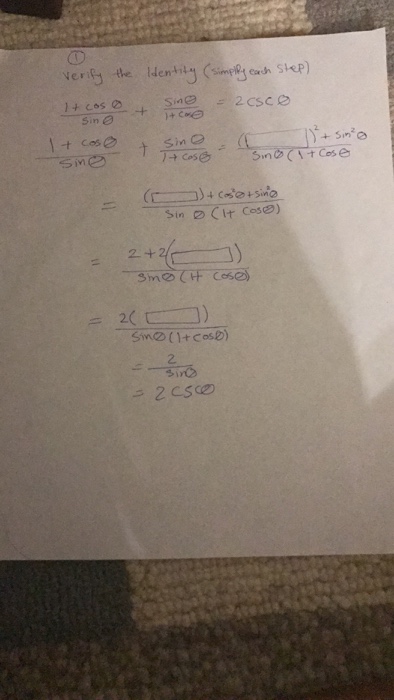 ①
Verify the Identity (simplify each step)
1 + cos θ / sin θ + sin θ / 1 + cos θ = 2 csc θ
1 + cos θ / sin θ + sin θ / 1 + cos θ = ( )² + sin² θ / sin θ (1 + cos θ
= ( ) + cos² θ + sin² θ / sin θ (1 + cos θ)
= 2 + 2( ) / sin θ (1 + cos θ)
= 2( ) / sin θ (1 + cos θ)
= 2 / sin θ
= 2 csc θ